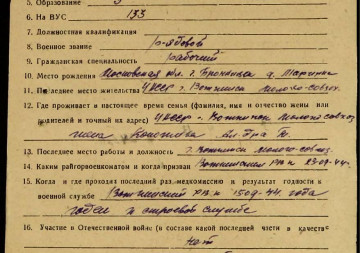 5. Образование
6. На ВУС 133
7. Должностная квалификация
8. Военное звание рядовой
9. Гражданская специальность рабочий
10. Место рождения Московская обл. г. Бронницы д. Марчуки
11. Последнее место жительства УАССР г. Воткинск
12. Где проживает в настоящее время семья (фамилия, имя и отчество жены или
родителей и точный их адрес) УАССР г. Воткинск
13. Последнее место работы и должность г. Воткинск
14. Каким райгорвоенкоматом и когда призван Воткинским РВК 23.09.44 г.
15. Когда и где проходил последний раз медкомиссию и результат годности к
военной службе Воткинский РВК 15.09.44 года
годен к строевой службе
16. Участие в Отечественной войне (в составе какой последней части в качестве
нет